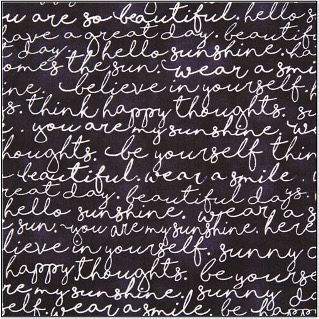 you are so beautiful. hello s
have a great day. beautifu
day. hello sunshine. here
om's the sun. wear a smile
ne. believe in yourself. h
s. think happy thoughts.
e. you are my sunshine. w
houghts. be yourself think
beautiful. wear a smile.
reat day. beautiful days.
hello sunshine. wear a s
y sun. you are my sunshine. here
lieve in yourself. sunny
happy thoughts. be yourse
re my sunshine. sunny d
self. wear a smile. be ha